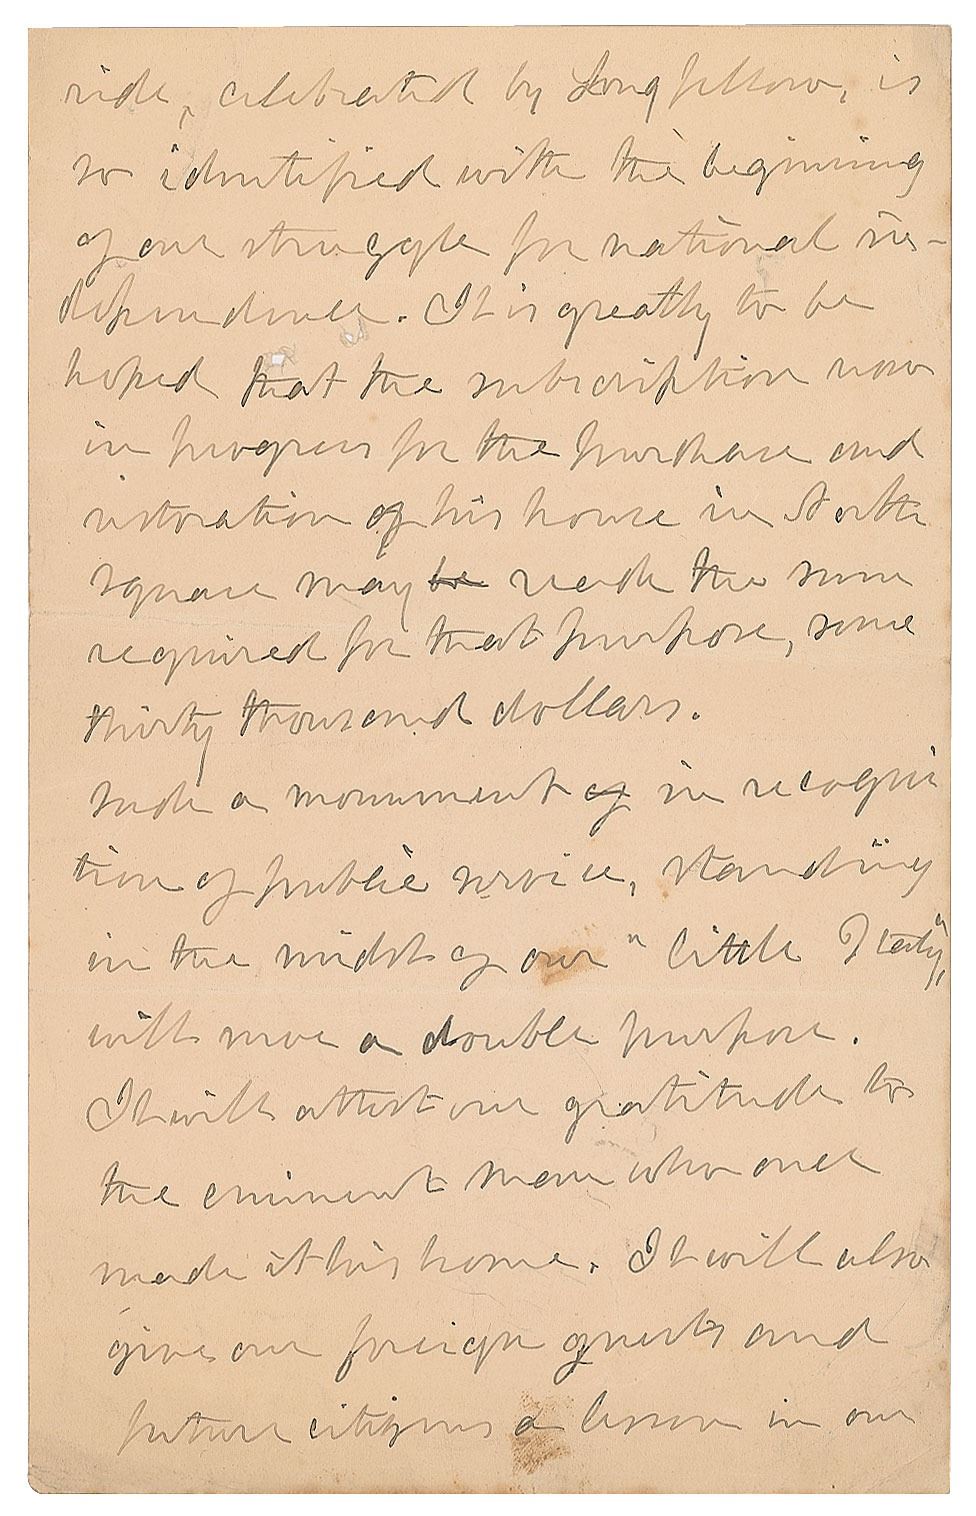 ride, celebrated by Longfellow, is
so identified with the beginning
of our struggle for national in-
dependence. It is greatly to be
hoped that the subscription now
in progress for the purchase and
restoration of his house in North
square may be reach the sum
required for that purpose, some
thirty thousand dollars.
Such a monument of in recogni
tion of public service, standing
in the midst of our "little Italy",
will serve a double purpose.
It will attest our gratitude to
the eminent man who once
made it his home. It will also
give our foreign guests and
future citizens a lesson in our